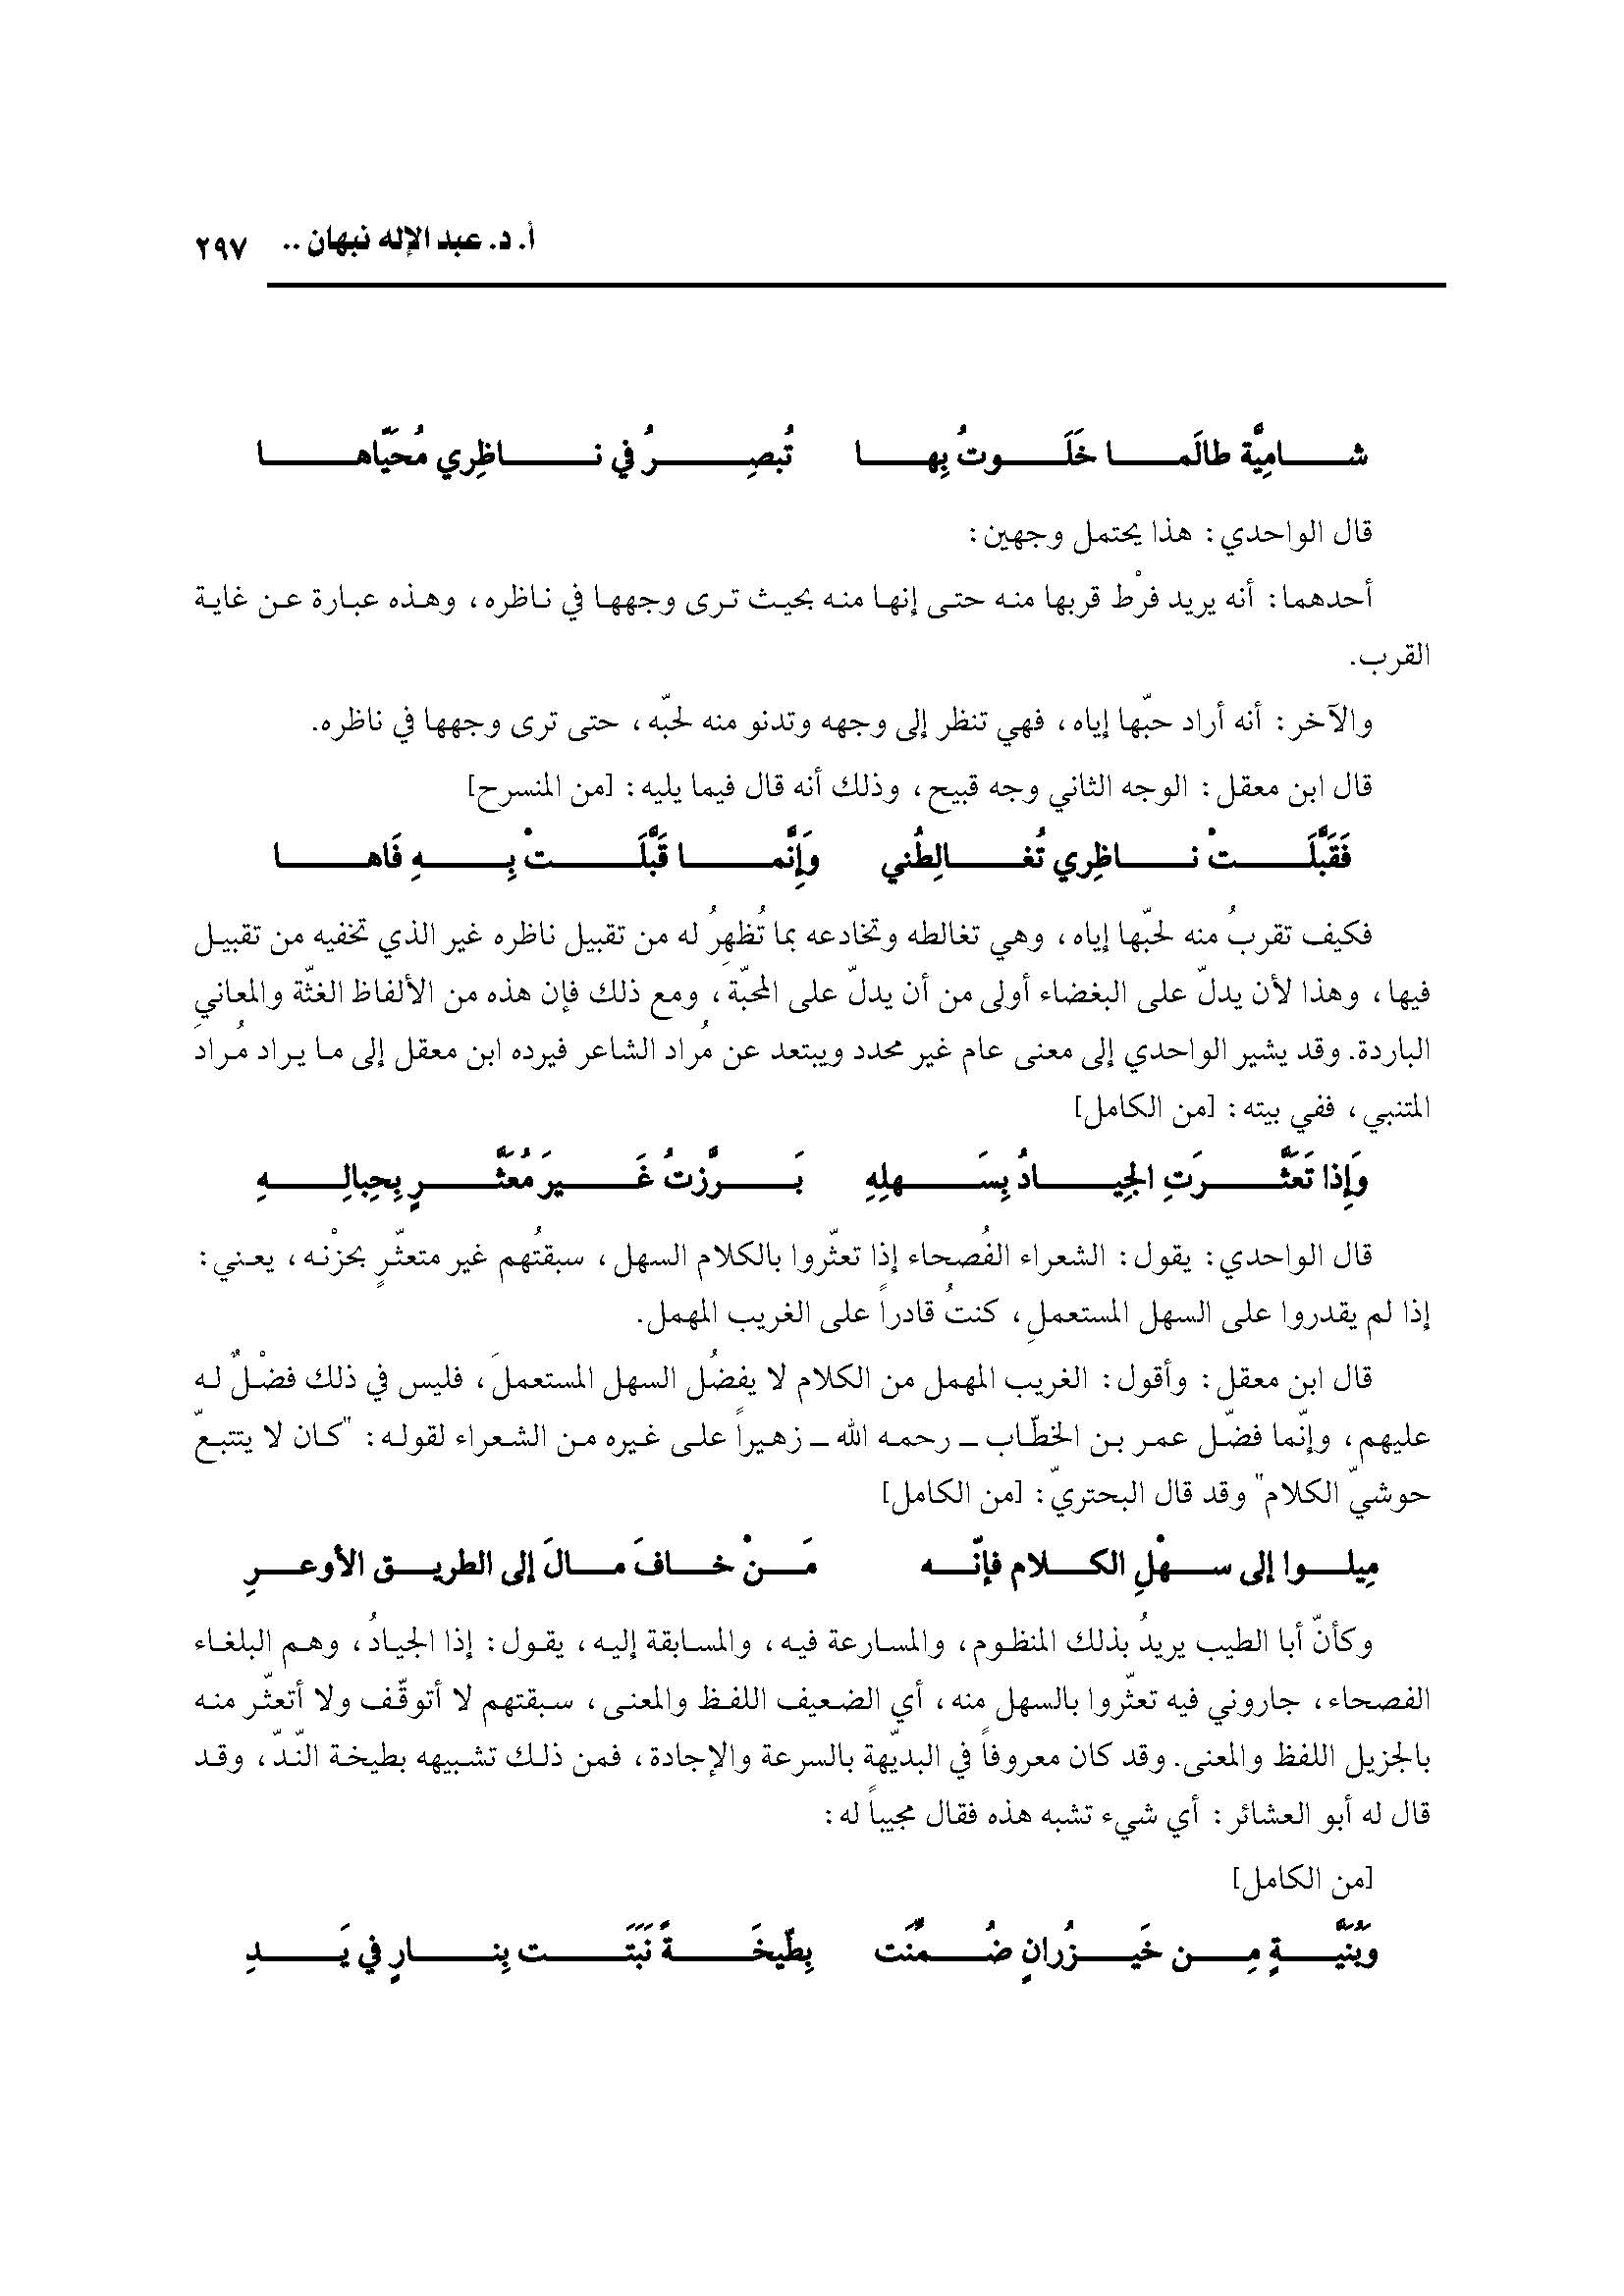 أ. د. عبد الإله نبهان .. ٢٩٧
شامِيَّة طالَما خَلَوتُ بِها تُبصِرُ في ناظِري مُحَيّاها
قال الواحدي: هذا يحتمل وجهين:
أحدهما: أنه يريد فرْط قربها منه حتى إنها منه بحيث ترى وجهها في ناظره، وهذه عبارة عن غاية
القرب.
والآخر: أنه أراد حبّها إياه، فهي تنظر إلى وجهه وتدنو منه لحبّه، حتى ترى وجهها في ناظره.
قال ابن معقل: الوجه الثاني وجه قبيح، وذلك أنه قال فيما يليه: [من المنسرح]
فَقَبَّلَتْ ناظِري تُغالِطُني وَإِنَّما قَبَّلَتْ بِهِ فَاها
فكيف تقربُ منه لحبّها إياه، وهي تغالطه وتخادعه بما تُظهِرُ له من تقبيل ناظره غير الذي تخفيه من تقبيل
فيها، وهذا لأن يدلّ على البغضاء أولى من أن يدلّ على المحبّة، ومع ذلك فإن هذه من الألفاظ الغثّة والمعاني
الباردة. وقد يشير الواحدي إلى معنى عام غير محدد ويبتعد عن مُراد الشاعر فيرده ابن معقل إلى ما يراد مُرادَ
المتنبي، ففي بيته: [من الكامل]
وَإِذا تَعَثَّرَتِ الجِيادُ بِسَهلِهِ بَرَّزتُ غَيرَ مُعَثَّرٍ بِحِبالِهِ
قال الواحدي: يقول: الشعراء الفُصحاء إذا تعثّروا بالكلام السهل، سبقتُهم غير متعثّرٍ بحزْنه، يعني:
إذا لم يقدروا على السهل المستعملِ، كنتُ قادراً على الغريب المهمل.
قال ابن معقل: وأقول: الغريب المهمل من الكلام لا يفضُل السهل المستعملَ، فليس في ذلك فضْلٌ له
عليهم، وإنّما فضّل عمر بن الخطّاب ـ رحمه الله ـ زهيراً على غيره من الشعراء لقوله: "كان لا يتتبعّ
حوشيّ الكلام" وقد قال البحتريّ: [من الكامل]
مِيلوا إلى سهْلِ الكلام فإنّه مَنْ خافَ مالَ إلى الطريق الأوعرِ
وكأنّ أبا الطيب يريدُ بذلك المنظوم، والمسارعة فيه، والمسابقة إليه، يقول: إذا الجيادُ، وهم البلغاء
الفصحاء، جاروني فيه تعثّروا بالسهل منه، أي الضعيف اللفظ والمعنى، سبقتهم لا أتوقّف ولا أتعثّر منه
بالجزيل اللفظ والمعنى. وقد كان معروفاً في البديّهة بالسرعة والإجادة، فمن ذلك تشبيهه بطيخة النّدّ، وقد
قال له أبو العشائر: أي شيء تشبه هذه فقال مجيباً له:
[من الكامل]
وَبُنَيَّةٍ مِن خَيزُرانٍ ضُمِّنَت بِطّيخَةً نَبَتَت بِنارٍ في يَدِ